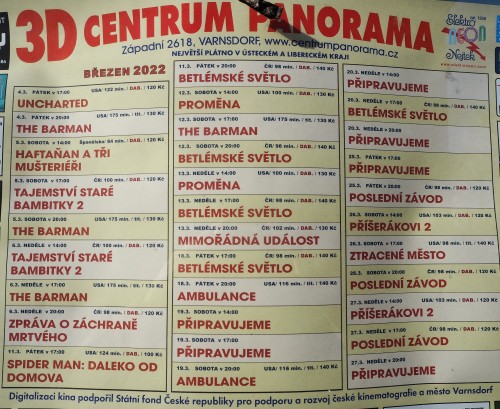 3D CENTRUM PANORAMA
Západní 2618, VARNSDORF, www.centrumpanorama.cz
NEJVĚTŠÍ PLÁTNO V ÚSTECKÉM A LIBERECKÉM KRAJI
Elektro
Nejtek
BŘEZEN 2022
4.3. PÁTEK v 17:00 USA/ 122 min. / DAB. / 120 Kč
UNCHARTED
4.3. PÁTEK v 20:00 USA/ 175 min. / tit. / 130 Kč
THE BARMAN
5.3. SOBOTA v 14:00 Španělsko/ 84 min. / DAB. / 120 Kč
HAFTAŇAN A TŘI
MUŠTERIÉŘI
5.3. SOBOTA v 17:00 ČR/ 100 min. / DAB. / 120 Kč
TAJEMSTVÍ STARÉ
BAMBITKY 2
5.3. SOBOTA v 20:00 USA/ 175 min. / tit. / 130 Kč
THE BARMAN
6.3. NEDĚLE v 14:00 ČR/ 100 min. / DAB. / 120 Kč
TAJEMSTVÍ STARÉ
BAMBITKY 2
6.3. NEDĚLE v 17:00 USA/ 175 min. / tit. / 130 Kč
THE BARMAN
6.3. NEDĚLE v 20:00 ČR/ 98 min. / DAB. / 120 Kč
ZPRÁVA O ZÁCHRANĚ
MRTVÉHO
11.3. PÁTEK v 17:00 USA/ 124 min. / DAB. / 100 Kč
SPIDER MAN: DALEKO OD
DOMOVA
11.3. PÁTEK v 20:00 ČR/ 98 min. / DAB. / 140 Kč
BETLÉMSKÉ SVĚTLO
12.3. SOBOTA v 14:00 USA/ 100 min. / DAB. / 130 Kč
PROMĚNA
12.3. SOBOTA v 17:00 USA/ 175 min. / tit. / 130 Kč
THE BARMAN
12.3. SOBOTA v 20:00 ČR/ 98 min. / DAB. / 140 Kč
BETLÉMSKÉ SVĚTLO
13.3. NEDĚLE v 14:00 USA/ 100 min. / DAB. / 130 Kč
PROMĚNA
13.3. NEDĚLE v 17:00 ČR/ 98 min. / DAB. / 140 Kč
BETLÉMSKÉ SVĚTLO
13.3. NEDĚLE v 20:00 ČR/ 102 min. / DAB. / 130 Kč
MIMOŘÁDNÁ UDÁLOST
18.3. PÁTEK v 17:00 ČR/ 98 min. / DAB. / 140 Kč
BETLÉMSKÉ SVĚTLO
18.3. PÁTEK v 20:00 USA/ 116 min. / tit. / 140 Kč
AMBULANCE
19.3. SOBOTA v 14:00
PŘIPRAVUJEME
19.3. SOBOTA v 17:00
PŘIPRAVUJEME
19.3. SOBOTA v 20:00 USA/ 116 min. / tit. / 140 Kč
AMBULANCE
20.3. NEDĚLE v 14:00
PŘIPRAVUJEME
20.3. NEDĚLE v 17:00 ČR/ 98 min. / DAB. / 140 Kč
BETLÉMSKÉ SVĚTLO
20.3. NEDĚLE v 20:00
PŘIPRAVUJEME
25.3. PÁTEK v 17:00
PŘIPRAVUJEME
25.3. PÁTEK v 20:00 ČR/ 98 min. / DAB. / 120 Kč
POSLEDNÍ ZÁVOD
26.3. SOBOTA v 14:00 USA/ 103 min. / DAB. / 120 Kč
PŘÍŠERÁKOVI 2
26.3. SOBOTA v 17:00 USA/ 98 min. / DAB. / 130 Kč
ZTRACENÉ MĚSTO
26.3. SOBOTA v 20:00 ČR/ 98 min. / DAB. / 120 Kč
POSLEDNÍ ZÁVOD
27.3. NEDĚLE v 14:00 USA/ 103 min. / DAB. / 120 Kč
PŘÍŠERÁKOVI 2
27.3. NEDĚLE v 17:00 ČR/ 98 min. / DAB. / 120 Kč
POSLEDNÍ ZÁVOD
27.3. NEDĚLE v 20:00
PŘIPRAVUJEME
Digitalizaci kina podpořil Státní fond České republiky pro podporu a rozvoj české kinematografie a město Varnsdorf